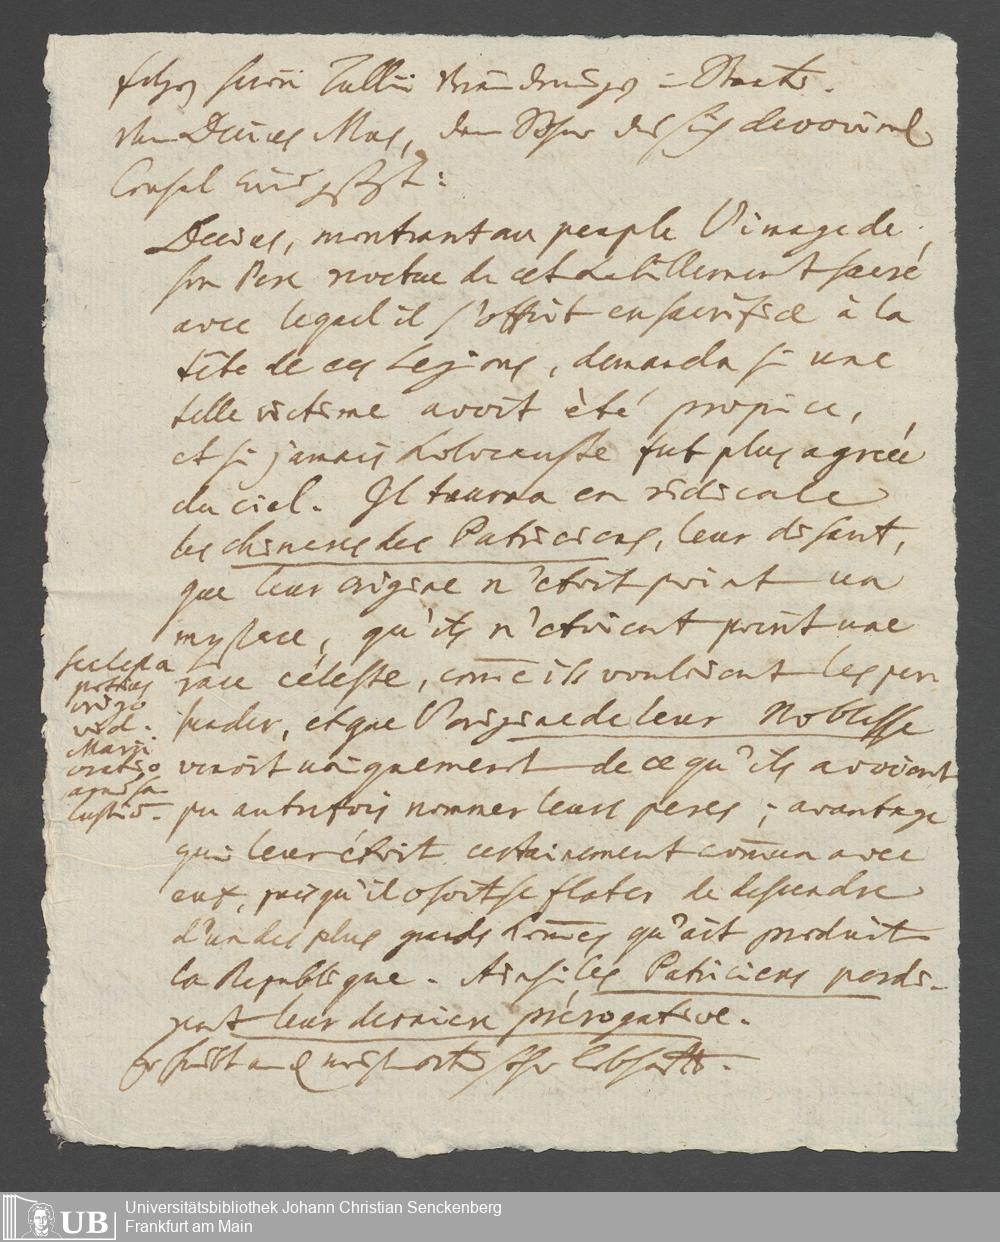 Servii Tullii
Decius Mus, devovirt
Consul
Decius, montrant au peuple l'image de
son Pere revetue de cet habillement sacré
avec lequel il s'offrit en sacrifice à la
tête de ces Legions, demanda si une
telle victime avoit êté propice,
et si jamais holocauste fut plus agréé
du ciel. Il tourna en ridicule
les chimeres des Patriciens, leur disant,
que leur origine n'etoit point un
mystere, qu'ils n'etoient point une
race céleste, com̄e ils vouloient les per
suader, et que l'origine de leur Noblesse
venoit uniquement de ce qu'ils avoient
pu autrefois nommer leurs peres; avantage
qui leur étoit certainement com̄un avec
eux, puisqu'il osoit se flater de descendre
d'un des plus grands hom̄es qu'ait produit
la Republique. Ainsi les Patriciens perdi-
rent leur derniere prérogative.
origo
vid.
Marii
oratio
apud Sa
lustiū.
Universitätsbibliothek Johann Christian Senckenberg
Frankfurt am Main
UB